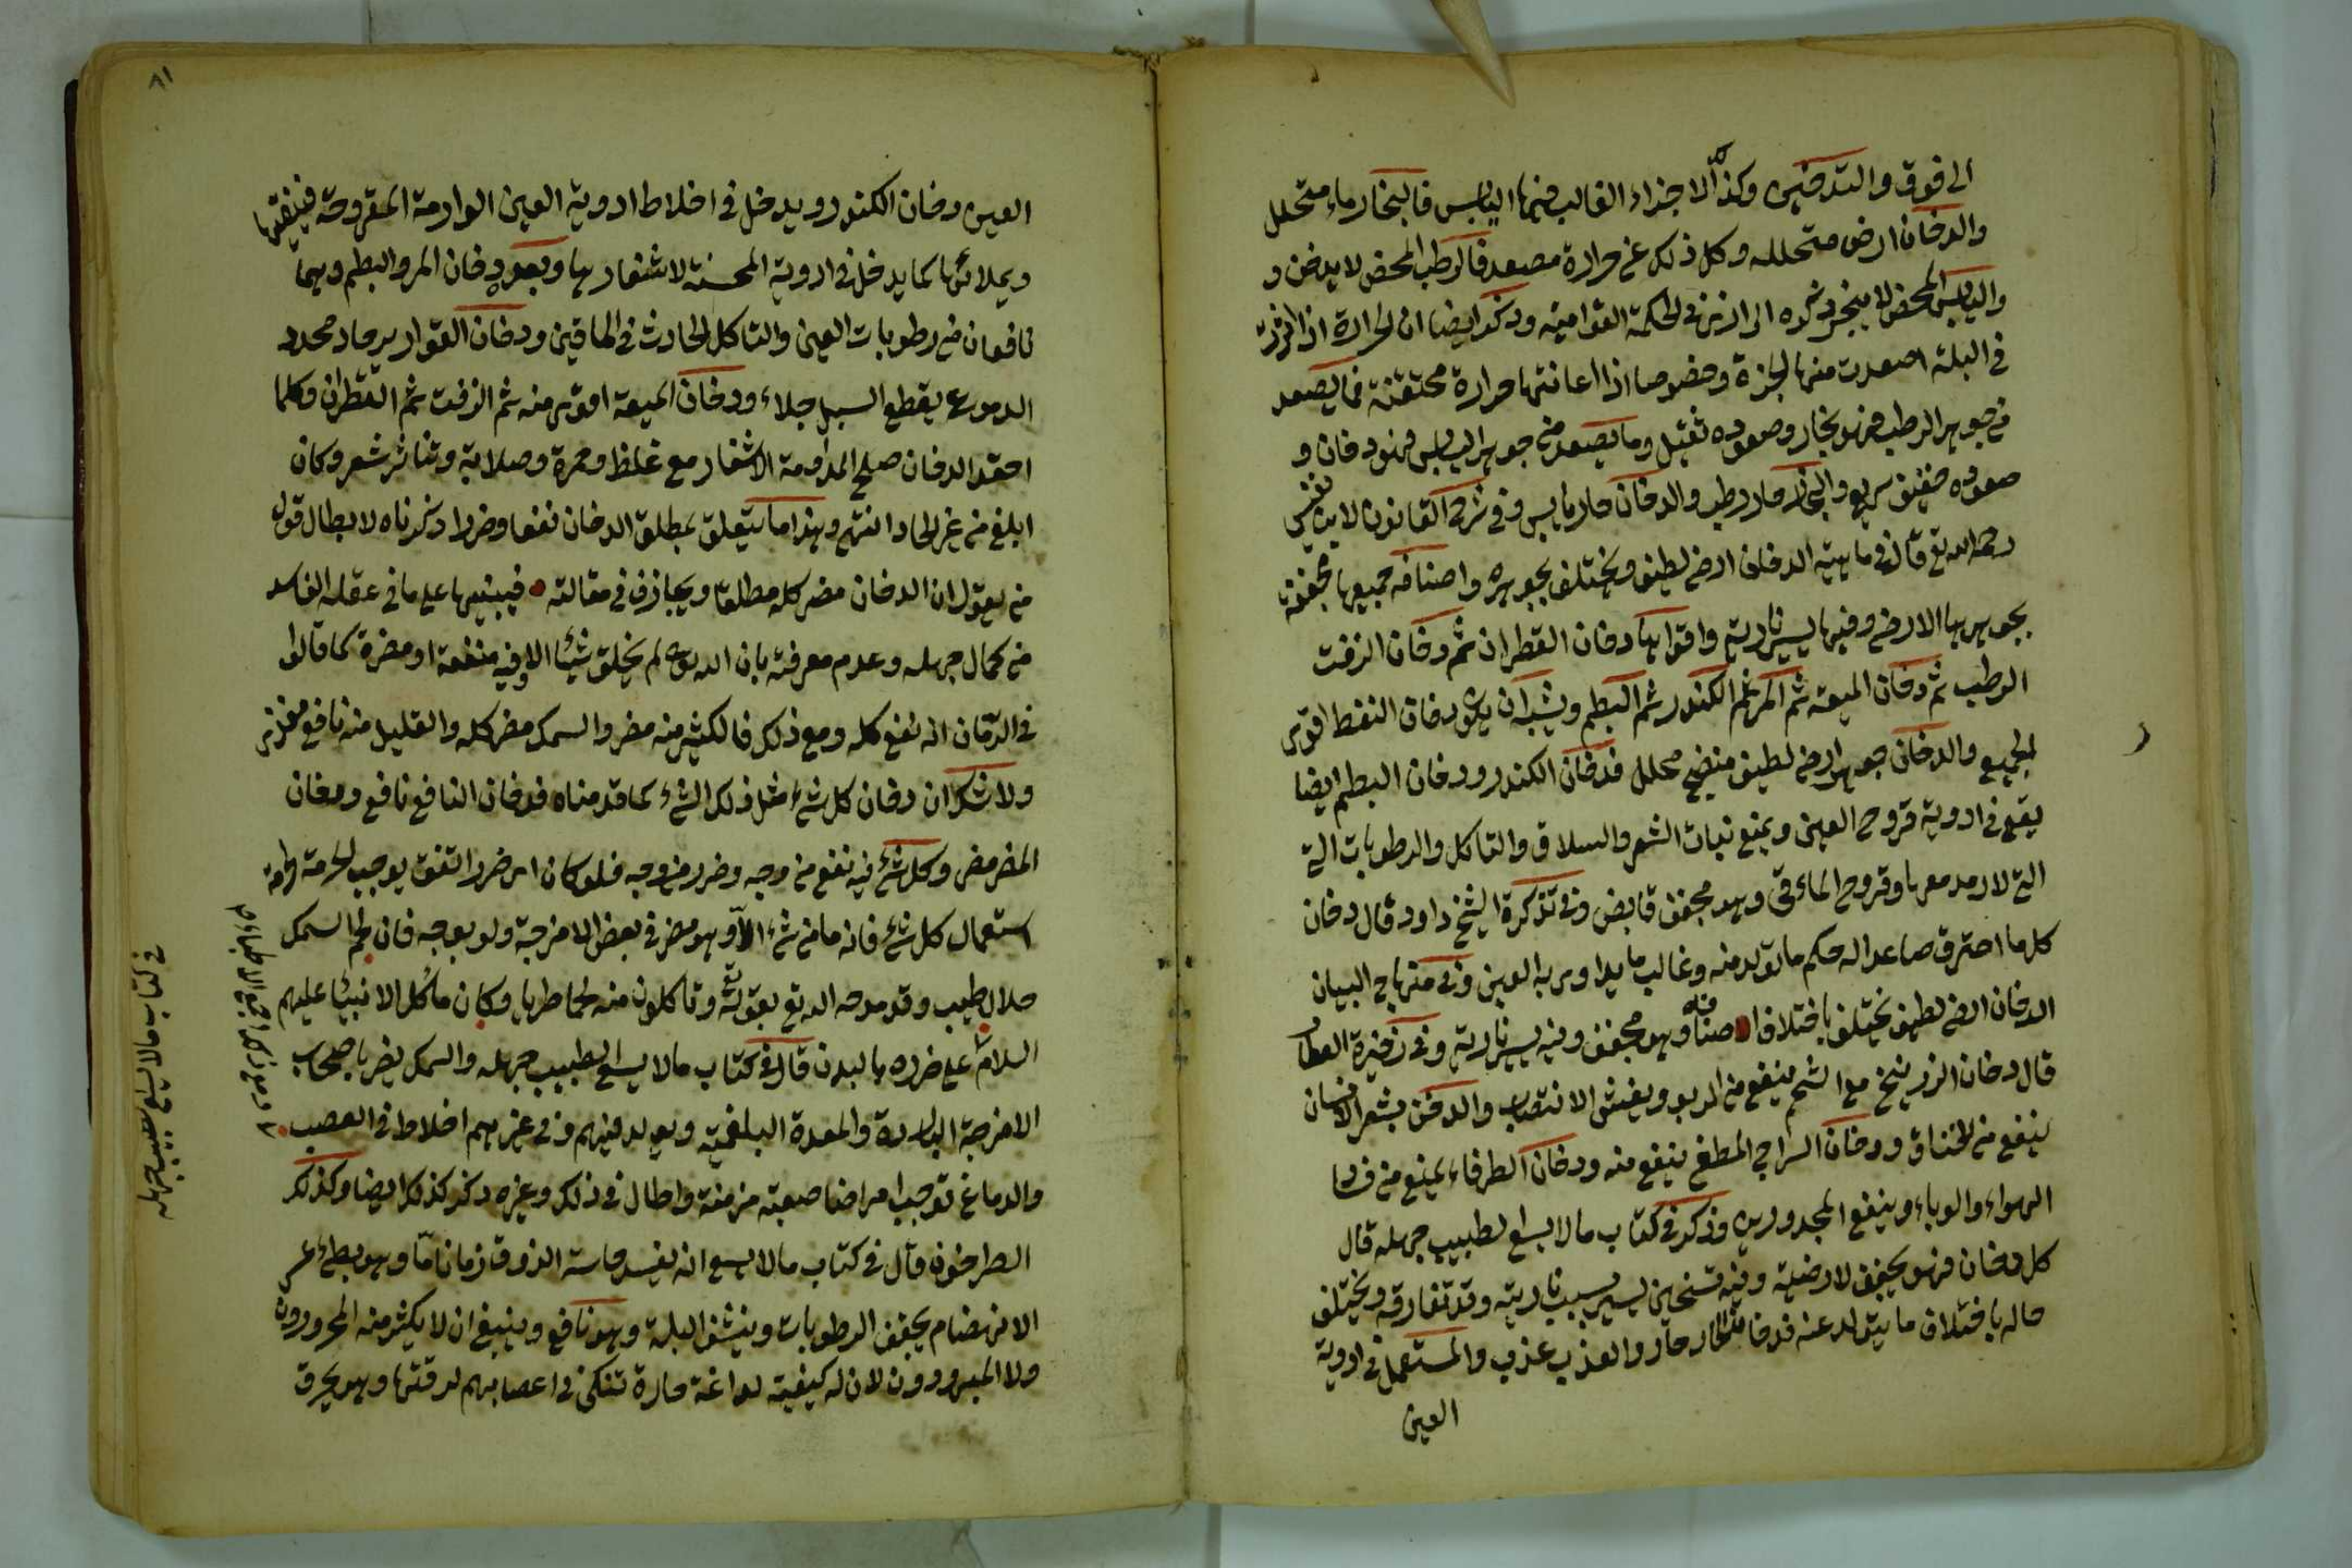 الى فوق والتدخين وكذا الاجزاء الغالب فيها اليابس فالبخار ماء متحلل
والدخان ارض متحللة وكل ذلك عن حرارة مصعدة فالرطب المحض لا يدخن و
واليابس المحض لا يبخر ذكره الرازى فى الحكمة القوامية وذكر ايضا ان الحرارة اذا اثرت
فى البلة اصعدت منها ابخرة وخصوصا اذا اعانتها حرارة محتقنة فما يصعد
من جوهر الرطب فهو بخار وصعوده ثقيل وما يصعد من جوهر اليابس فهو دخان و
صعوده خفيف سريع والبخار حار رطب والدخان حار يابس وفى شرح القانون لابن نفيس
رحمه الله تع قال فى ماهية الدخان ارضى لطيف ويختلف بجوهره واصنافه جميعها مجففة
بجوهرها الارضى وفيها يسير نارية واقواها دخان القطران ثم دخان الزفت
الرطب ثم دخان الميعة ثم المر ثم الكندر ثم البطم ويشبه ان يكون دخان النفط اقوى
الجميع والدخان جوهر ارضى لطيف منضج محلل فدخان الكندر ودخان البطم ايضا
يقع فى ادوية قروح العين ويمنع نبات الشعر والسلاق والتاكل والرطوبات التى
التى لا رمد معها وقروح الماءقى وهو مجفف قابض وفى تذكرة الشيخ داود قال دخان
كل ما احترق صاعدا له حكم ما تولد منه وغالب ما يداوى به العين وفى منهاج البيان
الدخان ارضى لطيف يختلف باختلاف اصنافه وهو مجفف وفيه يسير نارية وفى ذخيرة العطار
قال دخان الزرنيخ مع الشحم ينفع من الربو ويفش الانتصاب والدخن بشعر الانسان
ينفع من الخناق ودخان السراج المطفى ينفع منه ودخان الطرفاء يمنع من فساد
الهواء والوباء وينفع المجدورين وذكر فى كتاب ما لا يسع الطبيب جهله قال
كل دخان فهو يجفف لارضية وفيه تسخين يسير بسبب نارية وقد تفارقه ويختلف
حاله باختلاف ما يتولد عنه فدخان الحار حار والعذب عذب والمستعمل فى ادوية
العين
٨١
العين دخان الكندر ويدخل فى اخلاط ادوية العين الوارمة المقروحة فينقيها
ويملائها كما يدخل فى ادوية المحسنة لاشفارها وبعده دخان المر والبطم وهما
نافعان من رطوبات العين والتاكل الحادث فى الماقين ودخان القوارير حاد محدد
الدموع يقطع السبل جلاء ودخان الميعة اقوى منه ثم الزفت ثم القطران وكلما
احتد الدخان صلح لمداومة الاشفار مع غلظ وحمرة وصلابة وتناثر شعر وكان
ابلغ من غير الحاد انتهى وهذا ما يتعلق بمطلق الدخان نفعا وضررا ذكرناه لابطال قول
من يقول ان الدخان مضر كله مطلقا ويجازف فى مقالته فيبنيها على ما فى عقله الفاسد
من كمال جهله وعدم معرفته بان الله تع لم يخلق شيئا الا وفيه منفعة او مضرة كما قالوا
فى الرمان انه نفع كله ومع ذلك فالكثير منه مضر والسمك مضر كله والقليل منه نافع مغزر
ولا شك ان دخان كل شئ مثل ذلك الشئ كما قدمناه فدخان النافع نافع ودخان
المضر مضر وكل شئ فيه نفع من وجه وضرر من وجه فلو كان اى ضرر اتفق يوجب الحرمة لحرمة
استعمال كل شئ فانه ما من شئ الا وهو مضر فى بعض الامزجة ولو بوجه فان لحم السمك
حلال طيب وقد مدحه الله تع بقوله وتاكلون منه لحما طريا وكان ماكل الانبيآ عليهم
السلام على ضرره بالبدن قال فى كتاب ما لا يسع الطبيب جهله والسمك يضر باصحاب
الامزجة الباردة والمعدة البلغمية ويولد فيهم وفى غيرهم اخلاط فى العصب
والدماغ توجب امراضا صعبة مزمنة واطال فى ذلك وغيره ذكر كذلك ايضا وكذلك
الطرخون قال فى كتاب ما لا يسع انه يفسد حاسة الذوق زمانا ما وهو بطئ عسر
الانهضام يجفف الرطوبات وينشف البلة وهو نافع وينبغى ان لا يكثر منه المحرورون
ولا المبرودون لان له كيفية لداغة حارة تنكى فى اعصابهم لدقتها وهو يحرق
فى كتاب ما لا يسع الطبيب جهله